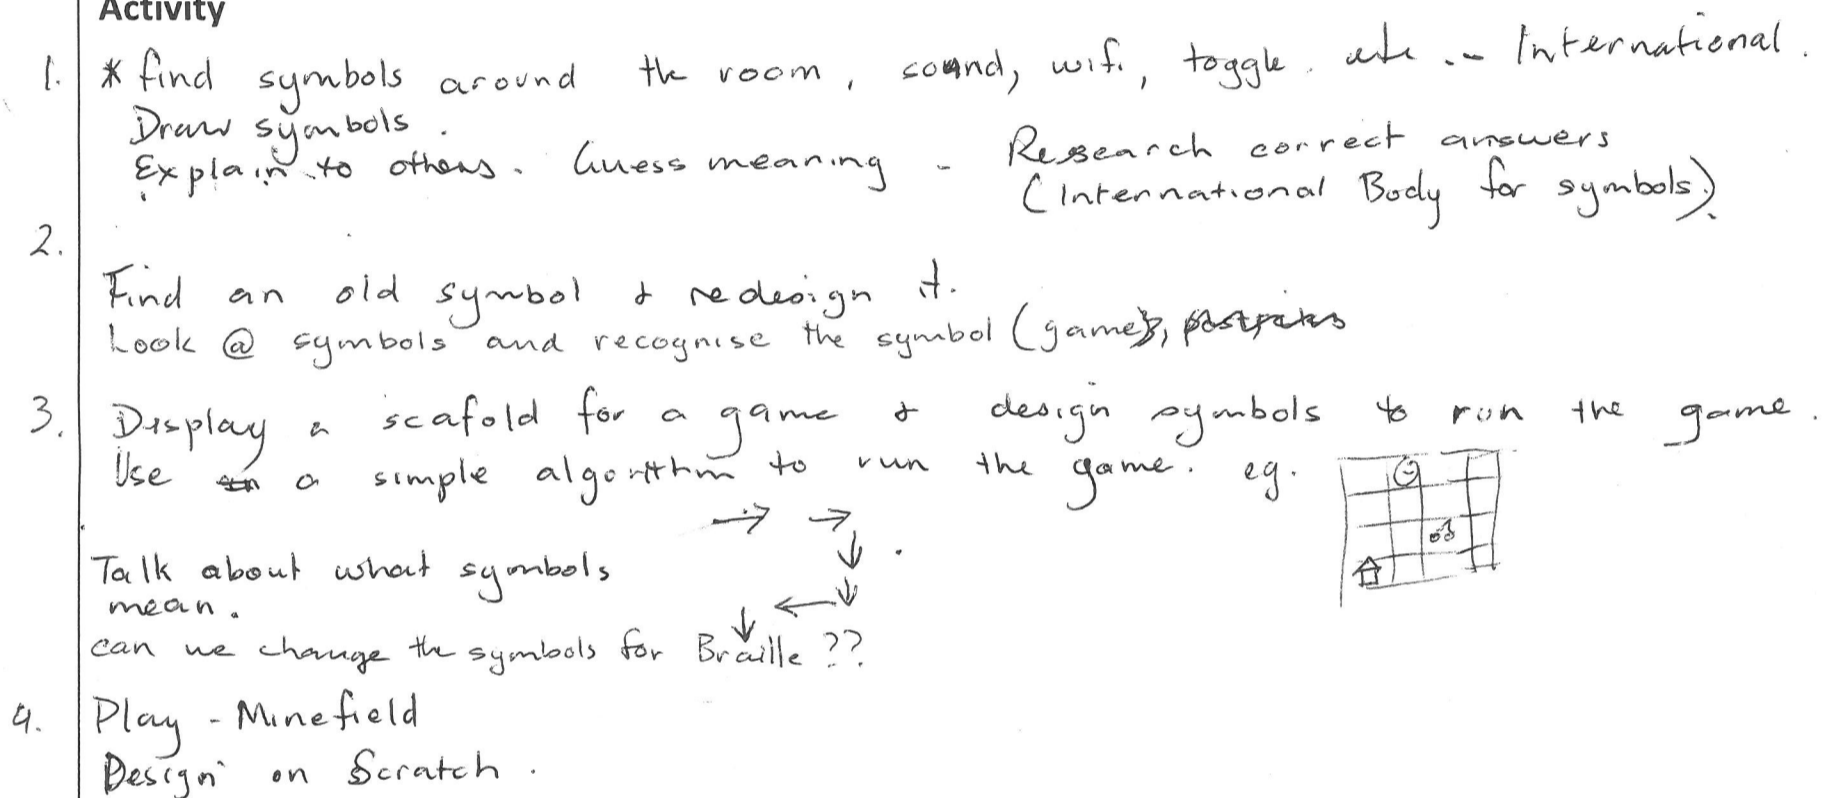 Activity
1. * find symbols around the room, sound, wifi, toggle. etc .. - International.
Draw symbols.
Explain to others. Guess meaning - Research correct answers
(International Body for symbols).
2.
Find an old symbol & redesign it.
Look @ symbols and recognise the symbol (games,
3. Display a scafold for a game & design symbols to run the game.
Use a simple algorithm to run the game. eg.
→ →
↓
Talk about what symbols
mean. ← ↓
↓
can we change the symbols for Braille ??
4. Play - Minefield
Design on Scratch.